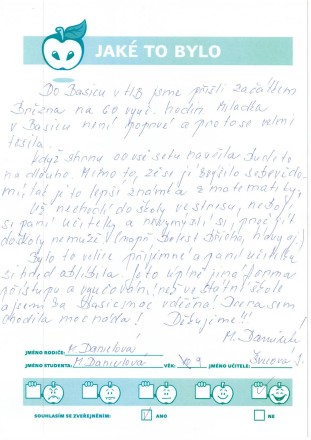 JAKÉ TO BYLO
Do Basicu v HB jsme přišli začátkem
března na 60 vyuč. hodin. Mladka
v Basicu není poprvé a proto se velmi
těšila.
Když shrnu co vše se tu naučila bude to
na dlouho. Mimo to, že se jí zvýšilo sebevědo-
mí, tak je to lepší známka z matematiky.
Už nechodí do školy ve stresu, nebojí
se paní učitelky a nevymýšlí si, proč jít
do školy nemůže (např. bolest břicha, hlavy aj.)
Bylo to velice příjemné a paní učitelku
si hned oblíbila. Je to úplně jiná forma
přístupu a vyučování, než ve státní škole
a jsem za Basic moc vděčná! Dcera sem
chodila moc ráda! Děkujeme!!!
M.
JMÉNO RODIČE: M. Danielová
JMÉNO STUDENTA: M. Danielová VĚK: 9 JMÉNO UČITELE:
SOUHLASÍM SE ZVEŘEJNĚNÍM: ANO NE